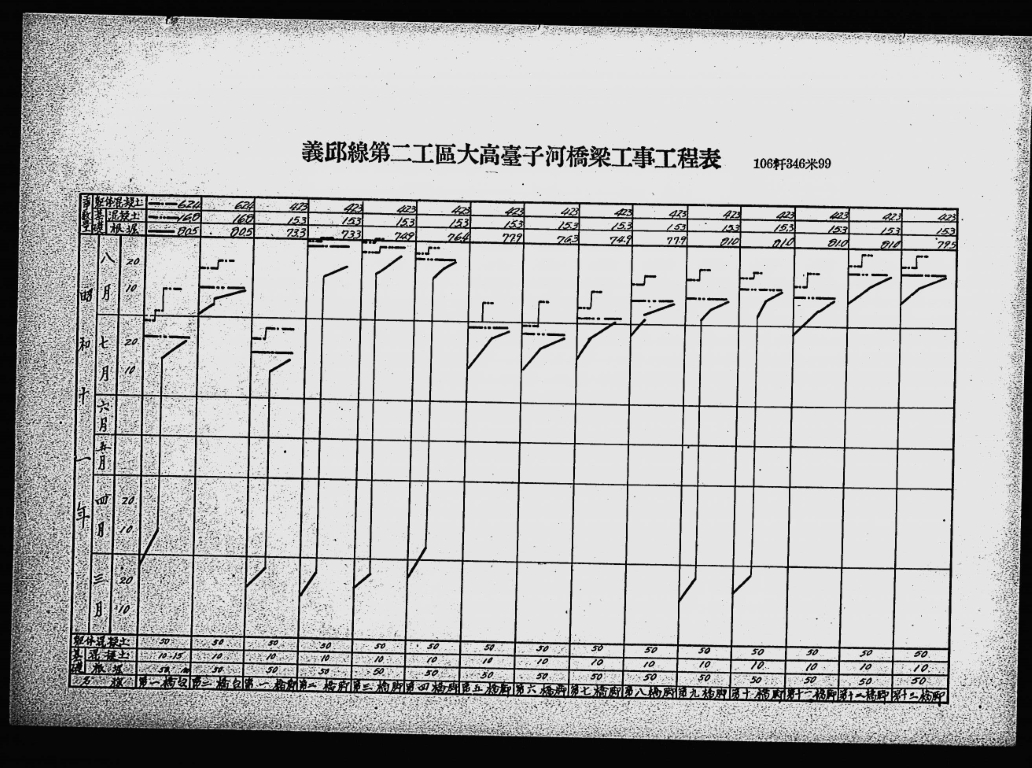 義邱線第二工區大高臺子河橋梁工事工程表 106粁346米99
軀体混凝土 624 624 423 423 423 423 423 423 423 423 423 423 423 423 423
基礎 混凝土 160 160 153 153 153 153 153 153 153 153 153 153 153 153 153
根堀 805 805 733 733 749 764 779 763 749 779 810 810 810 810 795
昭和十一年
八月 20 10
七月 20 10
六月
五月
四月 20 10
三月 20 10
軀体混凝土 50 50 50 50 50 50 50 50 50 50 50 50 50 50 50
基礎 混凝土 10 15 10 10 10 10 10 10 10 10 10 10 10 10 10 10
根堀 50 50 50 50 50 50 50 50 50 50 50 50 50 50
第一橋台 第二橋台 第一橋脚 第二橋脚 第三橋脚 第四橋脚 第五橋脚 第六橋脚 第七橋脚 第八橋脚 第九橋脚 第十橋脚 第十一橋脚 第十二橋脚 第十三橋脚